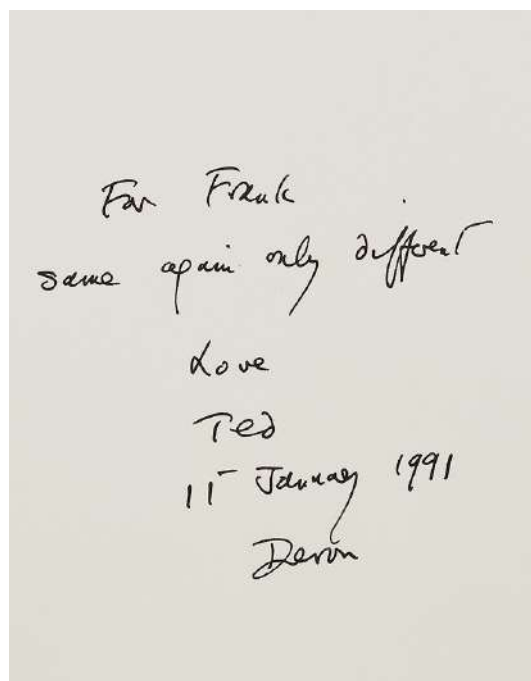 For Frank
same again only different
Love
Ted
11 January 1991
Devon